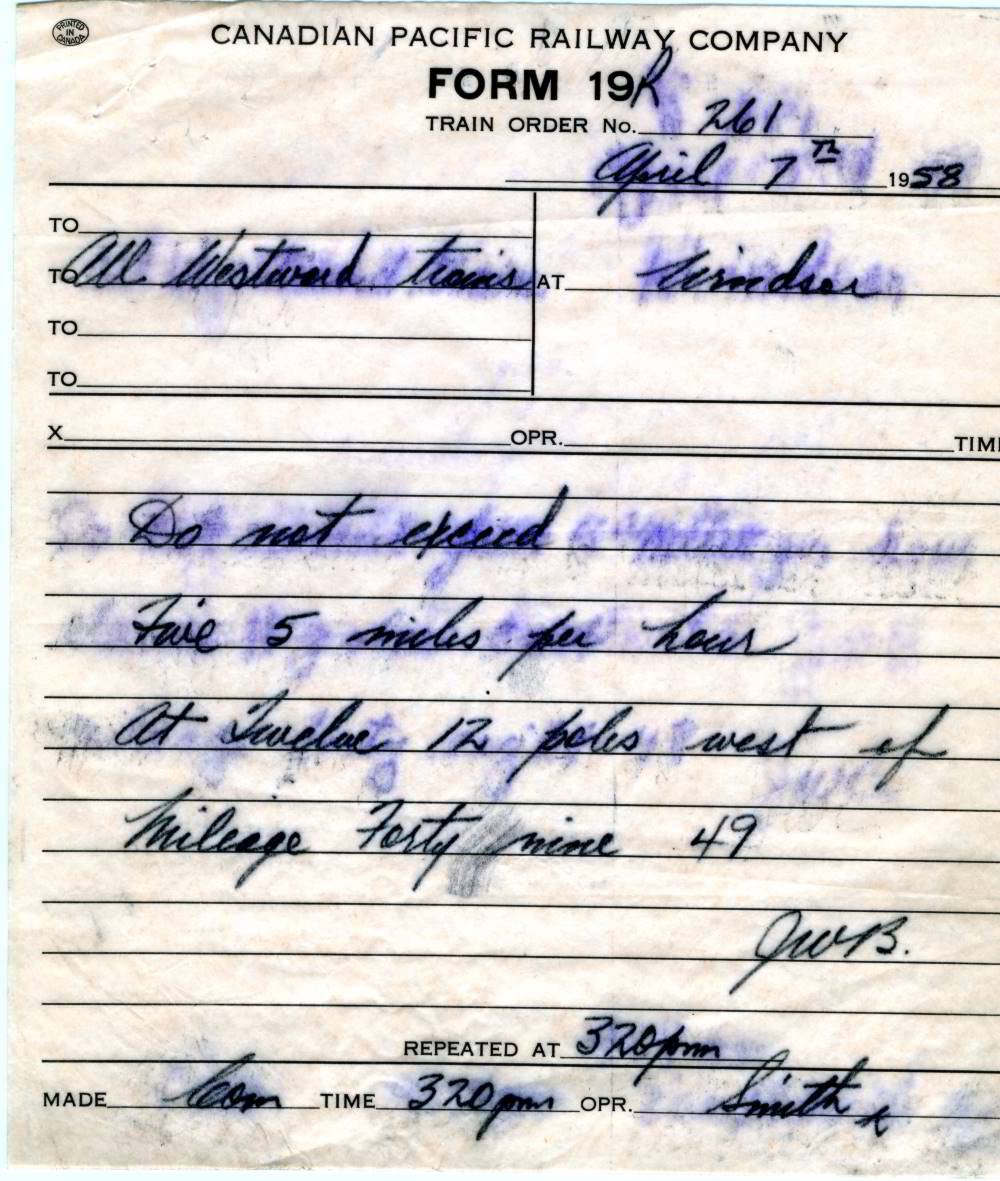 PRINTED IN CANADA
CANADIAN PACIFIC RAILWAY COMPANY
FORM 19R
TRAIN ORDER No. 261
April 7th 1958
TO
TO All Westward trains AT Windsor
TO
TO
X OPR. TIME
Do not exceed
Five 5 miles per hour
At Twelve 12 poles west of
Mileage Forty nine 49
JWB.
REPEATED AT 320pm
MADE Com TIME 320pm OPR. Smith